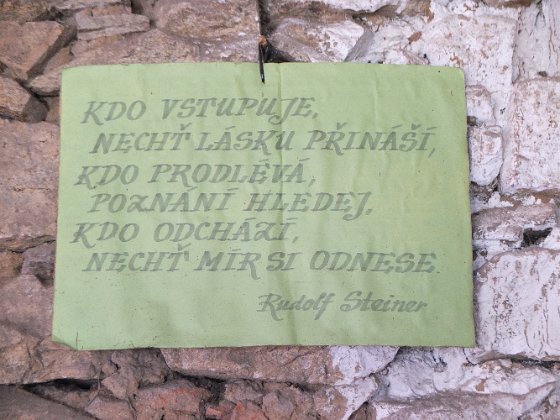 KDO VSTUPUJE,
NECHŤ LÁSKU PŘINÁŠÍ,
KDO PRODLÉVÁ,
POZNÁNÍ HLEDEJ,
KDO ODCHÁZÍ,
NECHŤ MÍR SI ODNESE
Rudolf Steiner